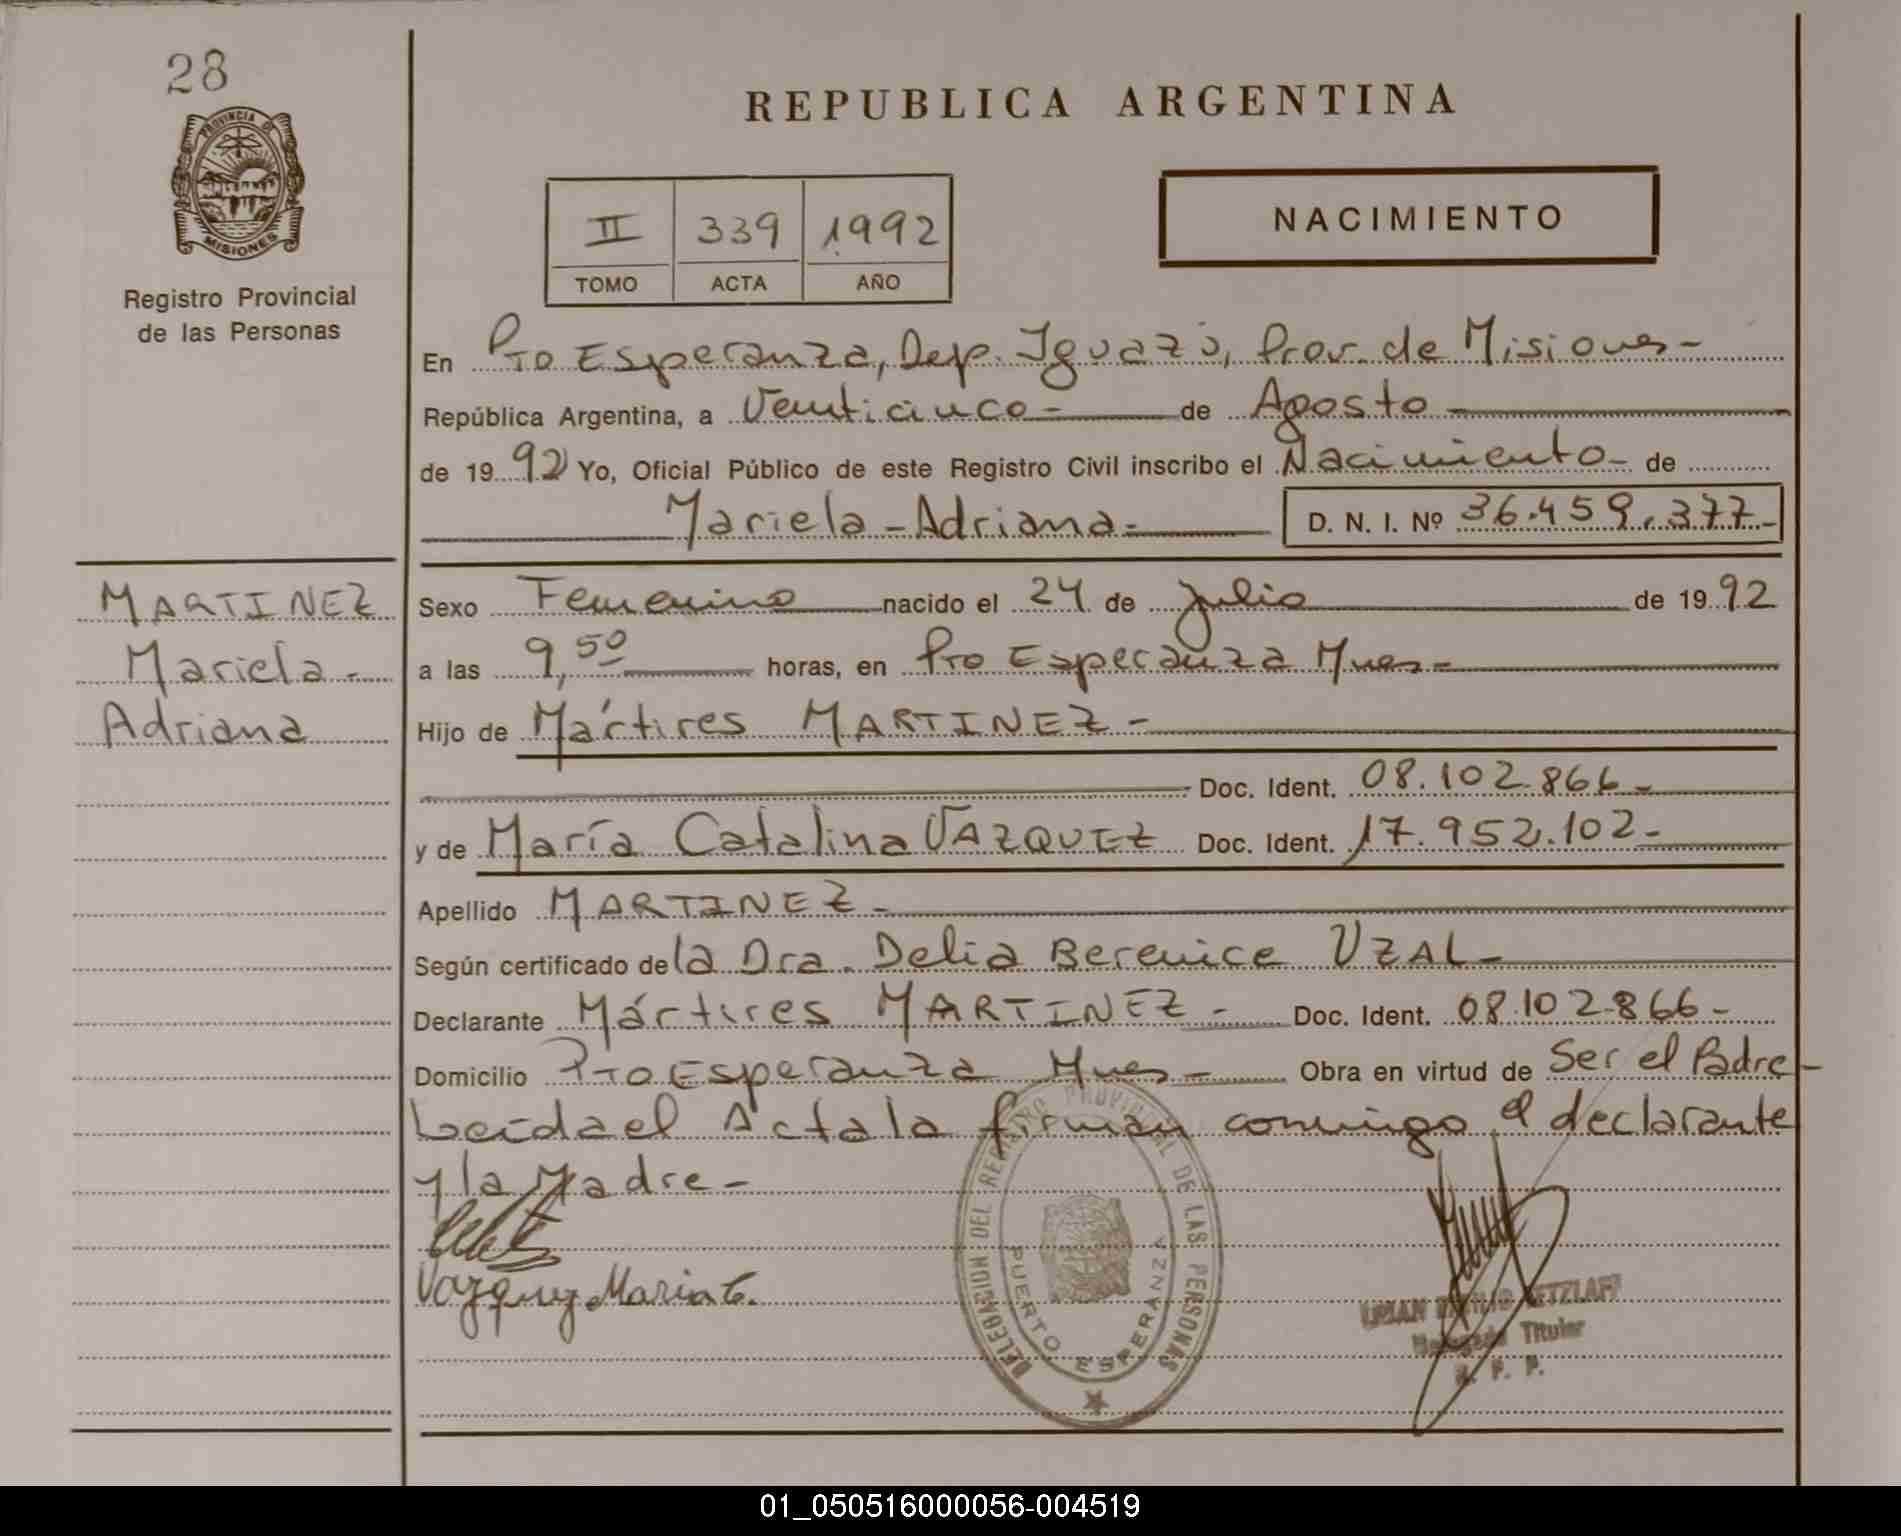 28
PROVINCIA DE
MISIONES
Registro Provincial
de las Personas
MARTINEZ
Mariela -
Adriana
REPUBLICA ARGENTINA
II 339 1992
TOMO ACTA AÑO
NACIMIENTO
En Pto Esperanza, Dep. Iguazú, Prov. de Misiones -
República Argentina, a Veinticinco - de Agosto
de 19 92 Yo, Oficial Público de este Registro Civil inscribo el Nacimiento - de
Mariela - Adriana - D. N. I. Nº 36.459.377 -
Sexo Femenino nacido el 24 de Julio de 19 92
a las 9,50 horas, en Pto Esperanza Mnes -
Hijo de Mártires MARTINEZ -
Doc. Ident. 08.102.866 -
y de María Catalina VAZQUEZ Doc. Ident. 17.952.102 -
Apellido MARTINEZ -
Según certificado de la Dra. Delia Berenice UZAL -
Declarante Mártires MARTINEZ - Doc. Ident. 08.102.866 -
Domicilio Pto Esperanza Mnes - Obra en virtud de Ser el Padre -
Leida el Acta la firman conmigo el declarante
y la Madre -
Vazquez Maria C.
DELEGACION DEL REGISTRO PROVINCIAL DE LAS PERSONAS
PUERTO ESPERANZA
Titular
01_050516000056-004519